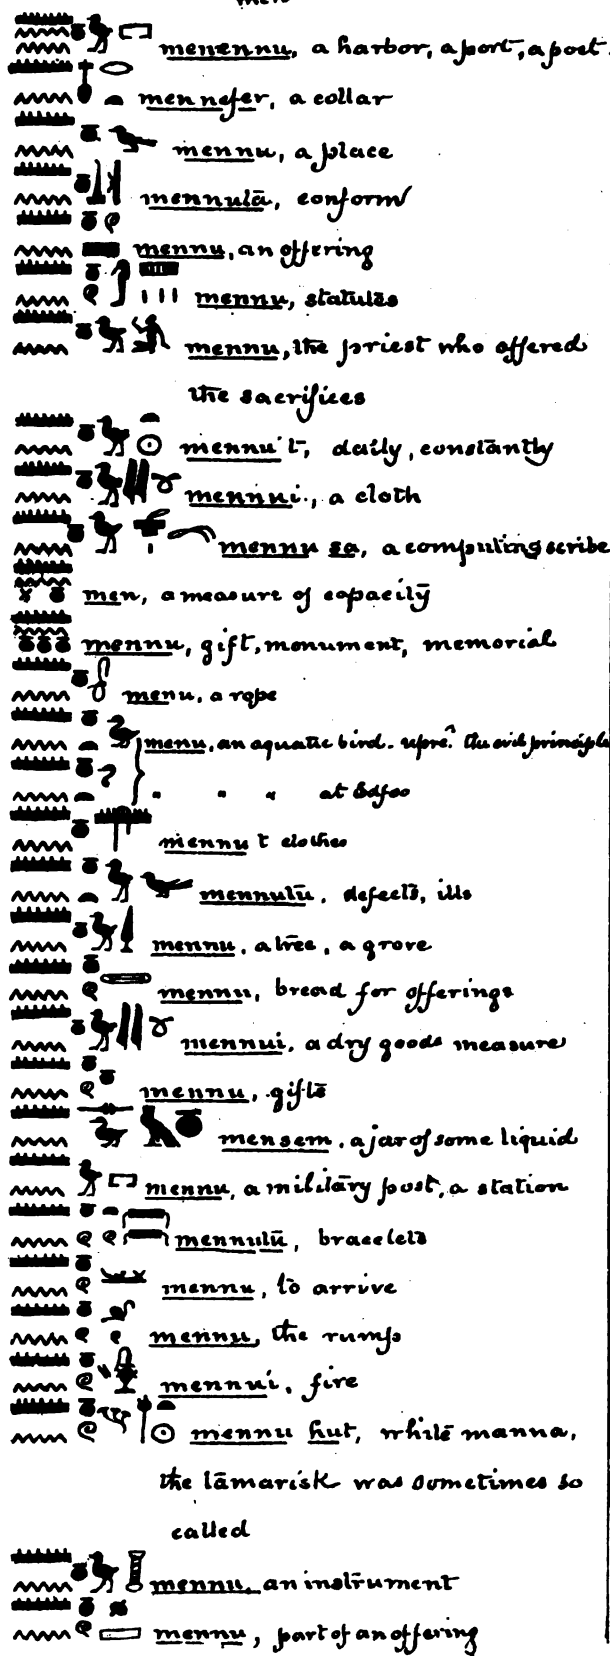 men
menennu, a harbor, a port, a poet.
mennefer, a collar
mennu, a place
mennulā, conform
mennu, an offering
mennu, statules
mennu, the priest who offered
the sacrifices
mennu't, daily, constantly
mennui., a cloth
mennu sa, a computing scribe
men, a measure of capacity
mennu, gift, monument, memorial
menu, a rope
menu, an aquatic bird. the evil principle
" " " at Edfoo
mennu t clothes
mennutu, defects, ills
mennu, a tree, a grove
mennu, bread for offerings
mennui, a dry goods measure
mennu, gifts
mensem, a jar of some liquid
mennu, a military post, a station
mennutu, bracelets
mennu, to arrive
mennu, the rump
mennui, fire
mennu hut, white manna,
the tamarisk was sometimes so
called
mennu, an instrument
mennu, part of an offering